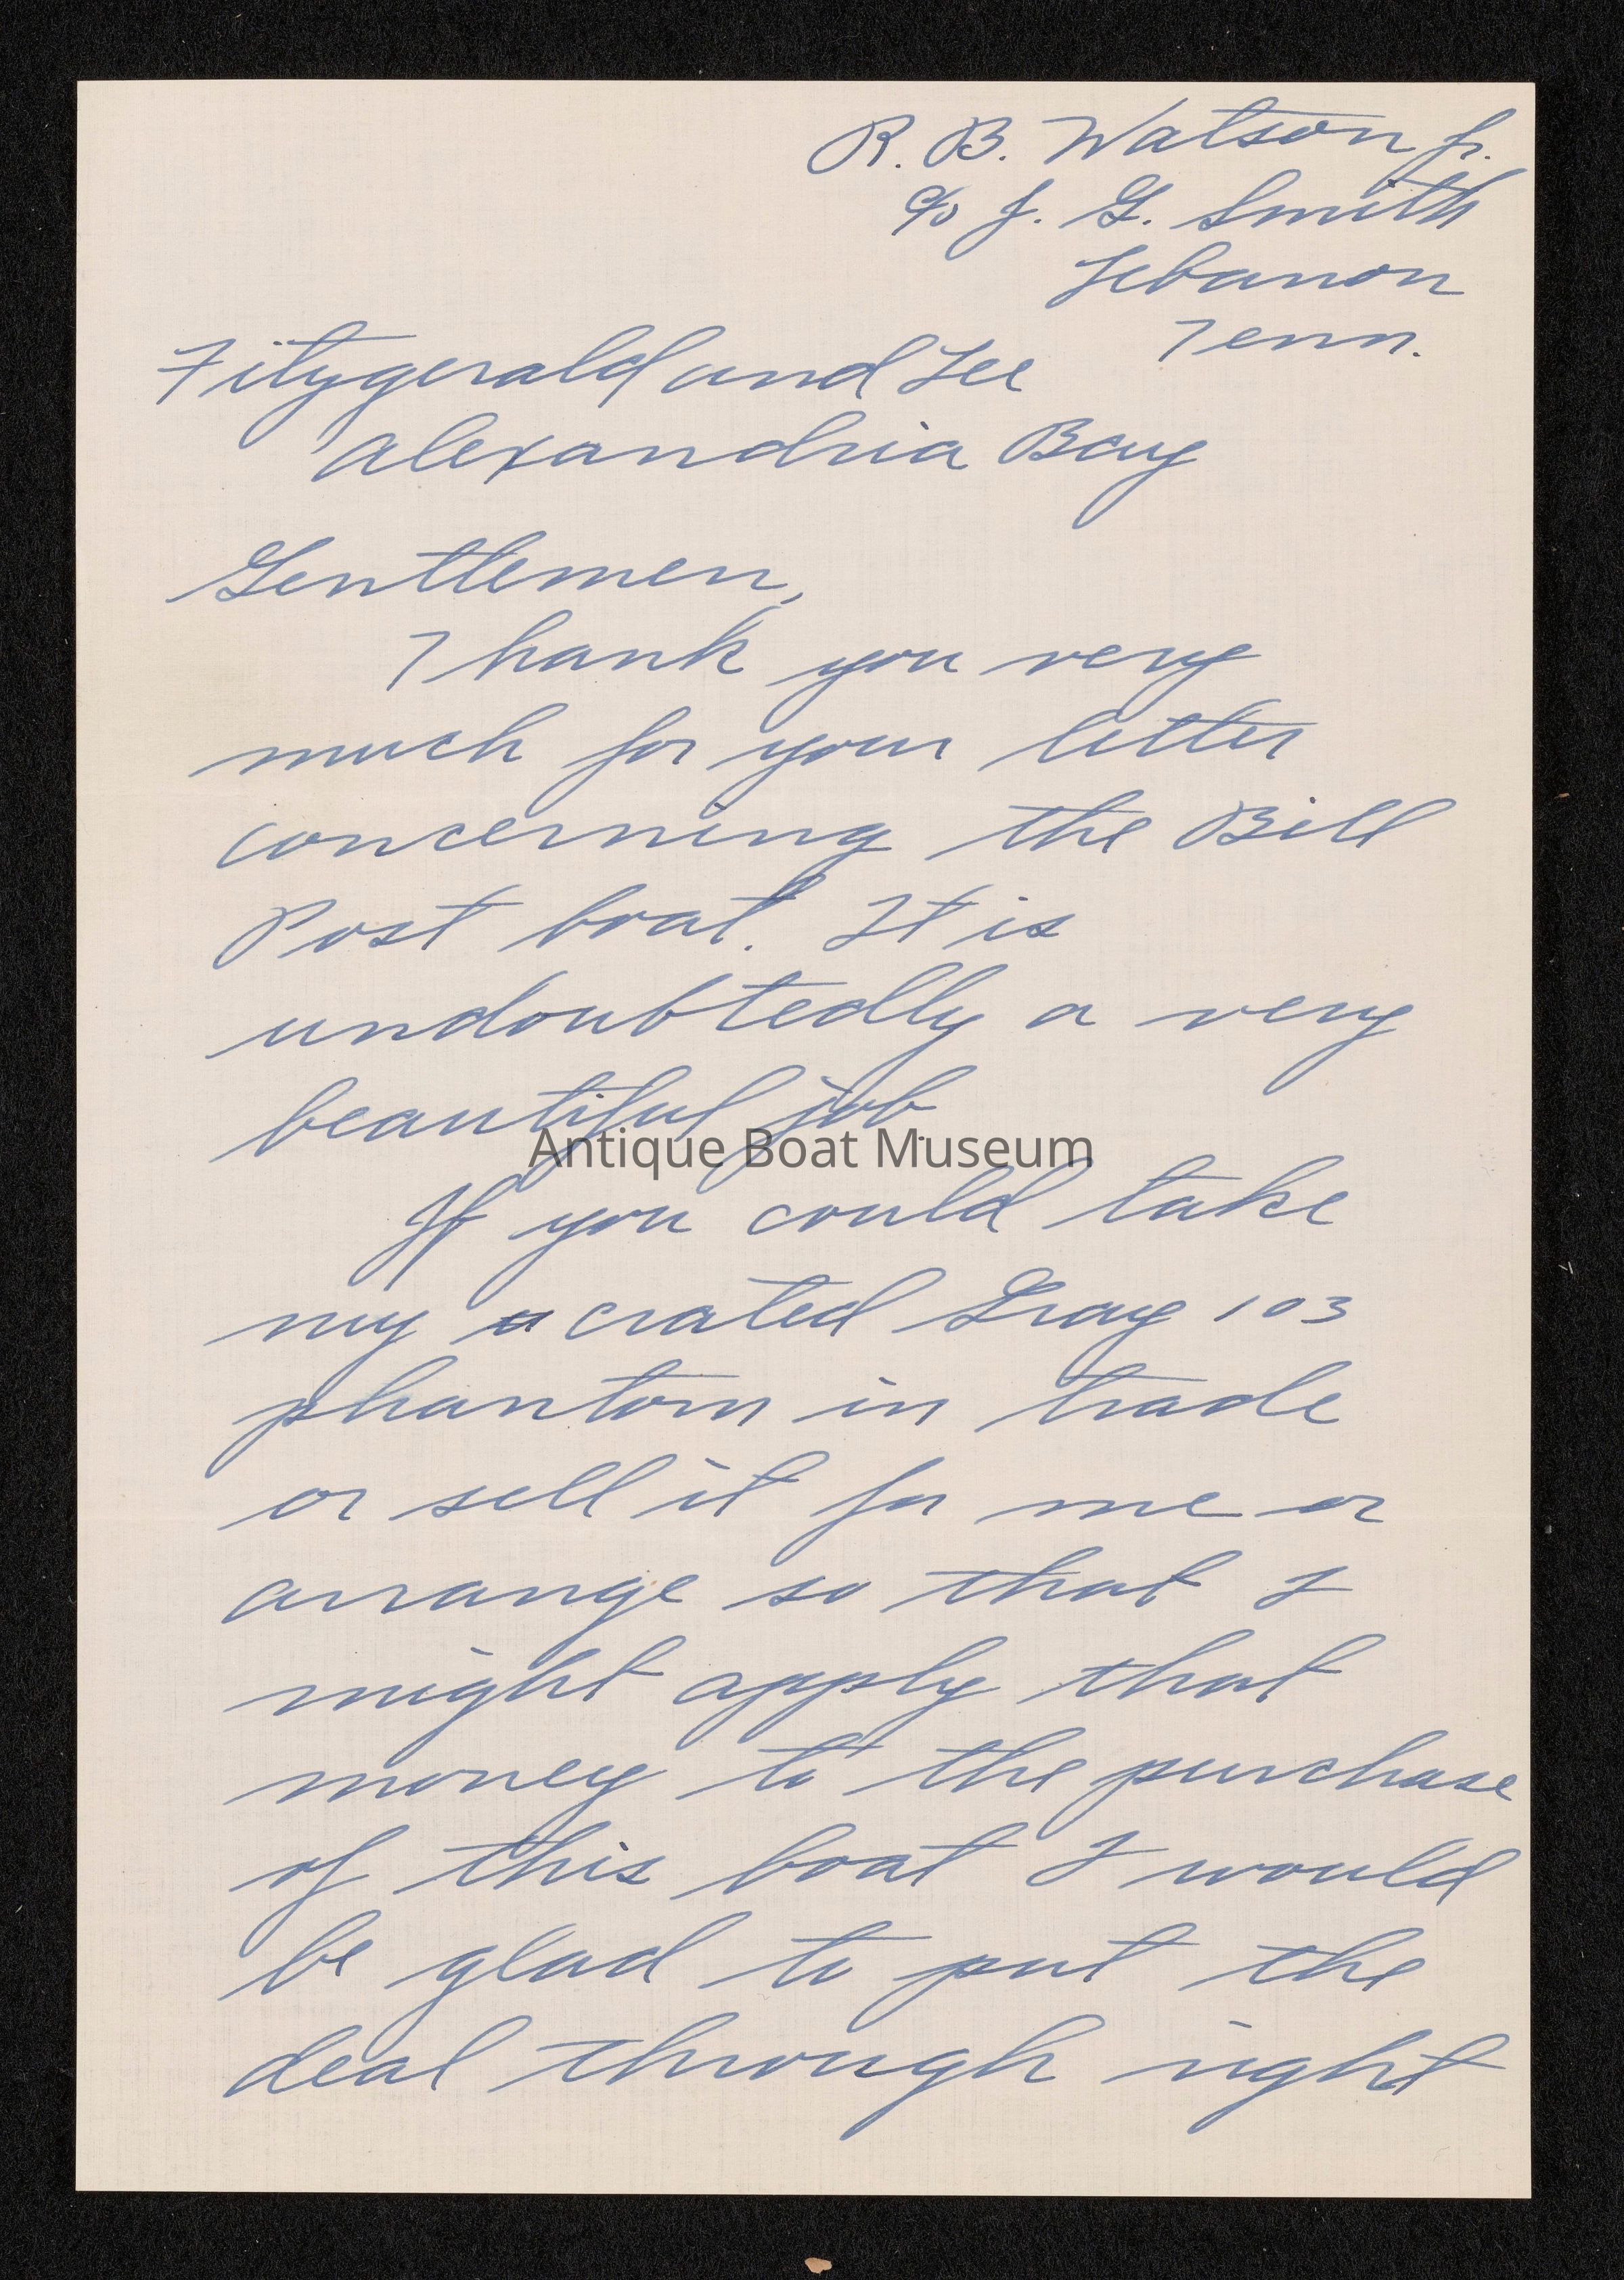 R. B. Watson Jr.
c/o J. G. Smith
Lebanon
Tenn.
Fitzgerald and Lee
Alexandria Bay
Gentlemen,
Thank you very
much for your letter
concerning the Bill
Post boat. It is
undoubtedly a very
beautiful job.
Antique Boat Museum
If you could take
my a crated Gray 103
phantom in trade
or sell it for me or
arrange so that I
might apply that
money to the purchase
of this boat I would
be glad to put the
deal through right